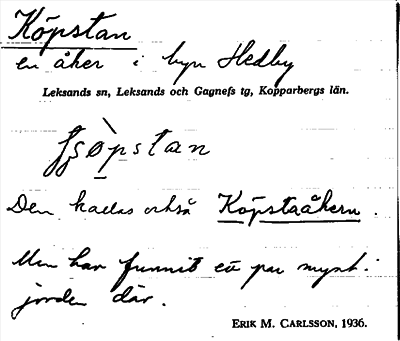 Köpstan
en åker i byn Hedby
Leksands sn, Leksands och Gagnefs tg, Kopparbergs län.
Den kallas också Köpstaåkern.
Man har funnit ett par mynt i
jorden där.
ERIK M. CARLSSON, 1936.